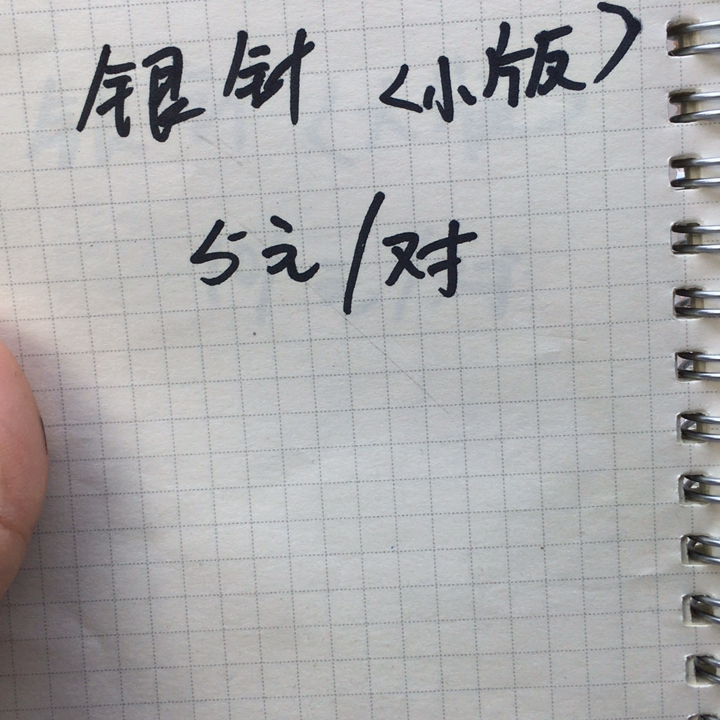 银针〈小版〉
5元/对